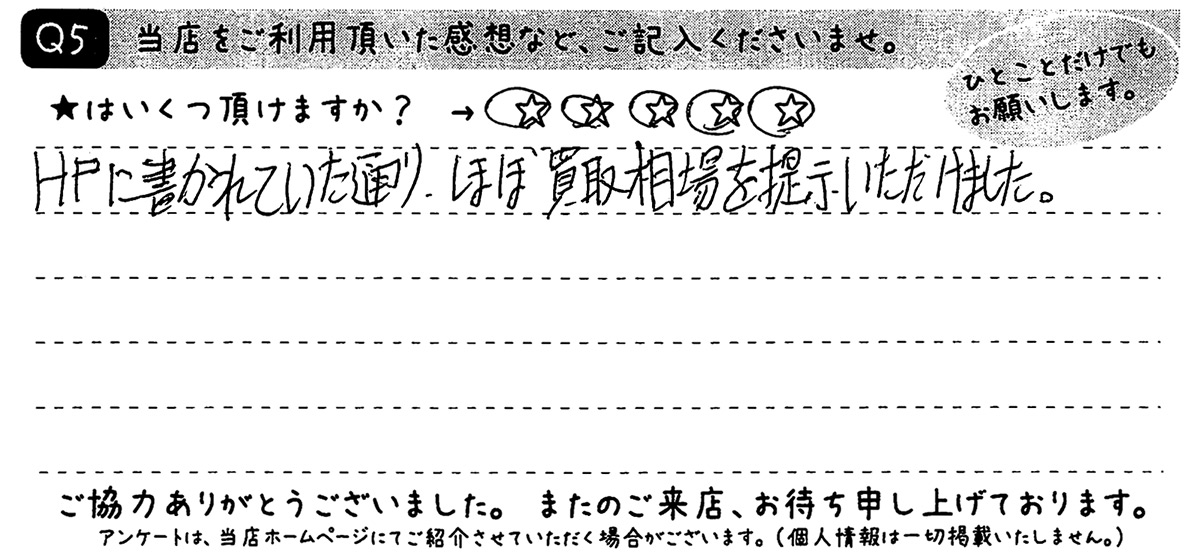 Q5 当店をご利用頂いた感想など、ご記入くださいませ。
ひとことだけでも
お願いします。
★はいくつ頂けますか? →☆☆☆☆☆
HPに書かれていた通り、ほぼ買取相場を提示いただけました。
ご協力ありがとうございました。 またのご来店、お待ち申し上げております。
アンケートは、当店ホームページにてご紹介させていただく場合がございます。(個人情報は一切掲載いたしません。)